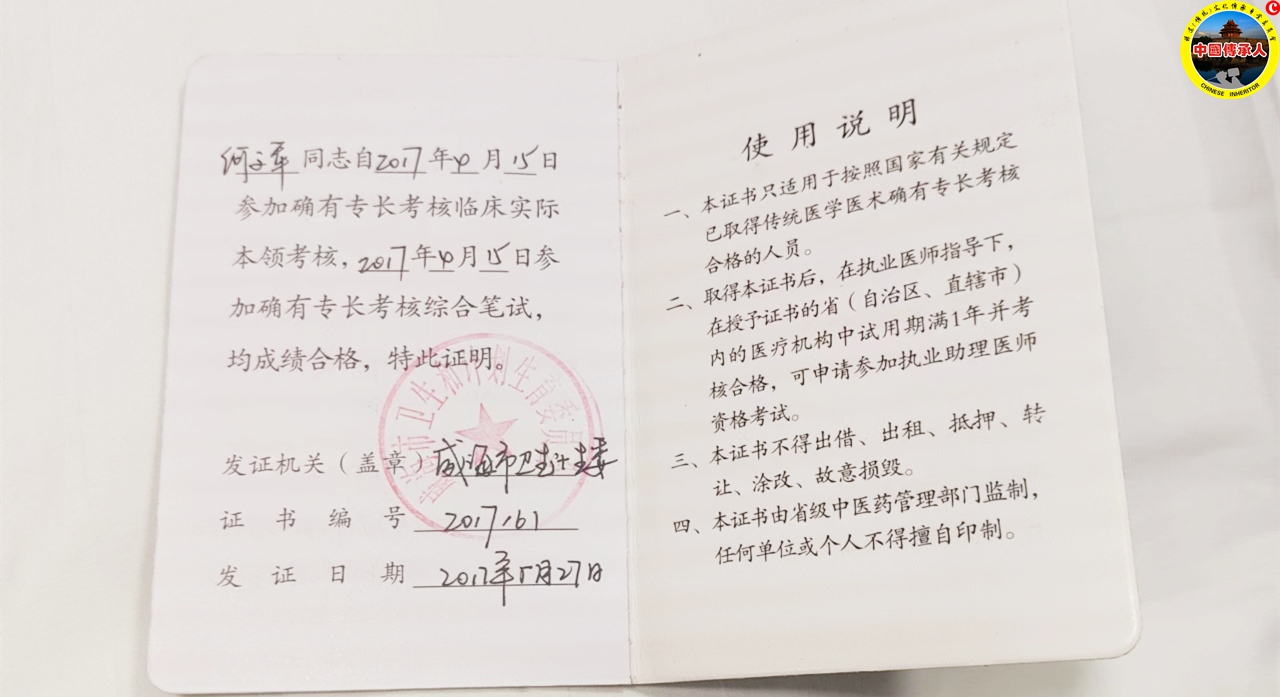 同志自2017年4月15日
参加确有专长考核临床实际
本领考核，2017年4月15日参
加确有专长考核综合笔试，
均成绩合格，特此证明。
海市卫生和计划生育委员
发证机关（盖章）威海市卫生计生委
证书编号 2017161
发证日期 2017年5月27日
使用说明
一、本证书只适用于按照国家有关规定
已取得传统医学医术确有专长考核
合格的人员。
二、取得本证书后，在执业医师指导下，
在授予证书的省（自治区、直辖市）
内的医疗机构中试用期满1年并考
核合格，可申请参加执业助理医师
资格考试。
三、本证书不得出借、出租、抵押、转
让、涂改、故意损毁。
四、本证书由省级中医药管理部门监制，
任何单位或个人不得擅自印制。
C
中國傳承人
CHINESE INHERITOR